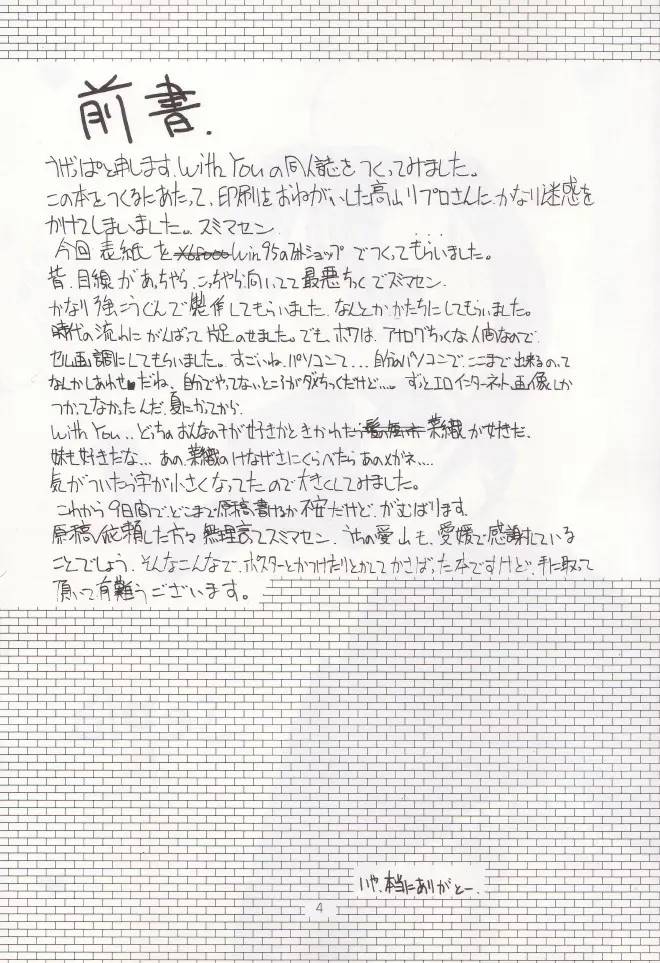 前書.
うげっぱと申します。With Youの同人誌をつくってみました。
この本をつくるにあたって、印刷をおねがいした高山リプロさんに、かなり迷惑を
かけてしまいました。スミマセン
今回表紙を X68000 Win95のフォトショップでつくってもらいました。
昔、目線があっちやら、こっちやら向いてて最悪ちっくでスミマセン.
かなり強こうぐんで製作してもらいました、なんとかかたちにしてもらいました。
時代の流れにがんばって片足のせました。でも、ボクは、アナログちっくな人間なので
セル画調にしてもらいました。すごいね、パソコンて...自分のパソコンで、ここまで出来るのって
なんかしあわせだね、自分でやってないところがダメちっくだけど...。ずっとエロインターネット画像しか
つかってなかったんだ、夏にかってから
With You..どっちのおんなの子が好きかときかれたら 菜織が好きだ、
妹も好きだな...あの、菜織のけなげさにくらべたらあのメガネ....
気がついたら字が小さくなってたので大きくしてみました。
これから9日間で、どこまで原稿書けるか不安だけど、がむばります。
原稿依頼した方々無理言ってスミマセン、うちの愛山も、愛媛で感謝している
ことでしょう、そんなこんなで、ポスターとかつけたりとかしてかさばった本ですけど、手に取って
頂いて有難うございます。
いや、本当にありがとー.
4